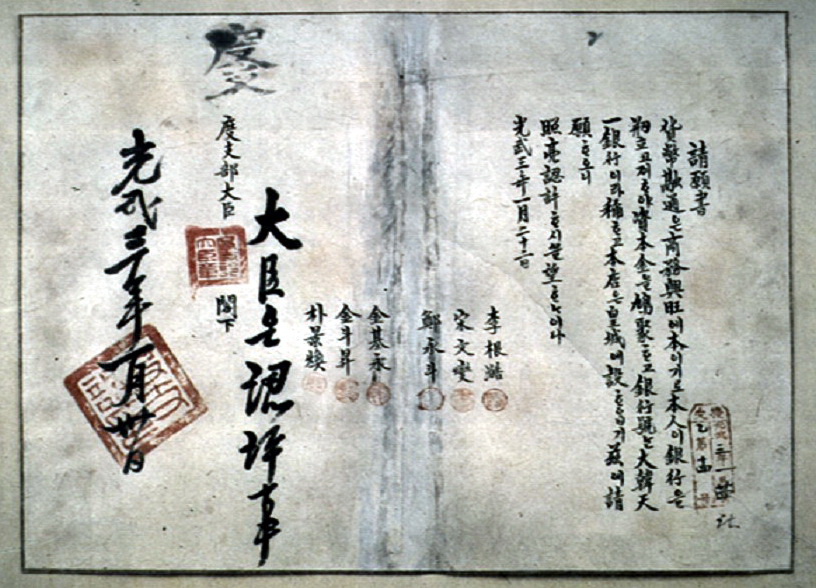 請願書
貨幣融通은商務興旺에本이기로本人이銀行을
刱立코져ᄒᆞ야資本金을鳩聚ᄒᆞ고銀行號는大韓天
一銀行이라稱ᄒᆞ고本店은皇城에設ᄒᆞ옵기玆에請
願ᄒᆞ오니
照亮認許ᄒᆞ시믈望ᄒᆞ노이다
光武三年一月二十二日
李根
宋文燮
鄭永斗
金基永
金斗昇
朴景煥
大臣은認許事
度支部大臣 閣下
度支
光武三年一月卅日